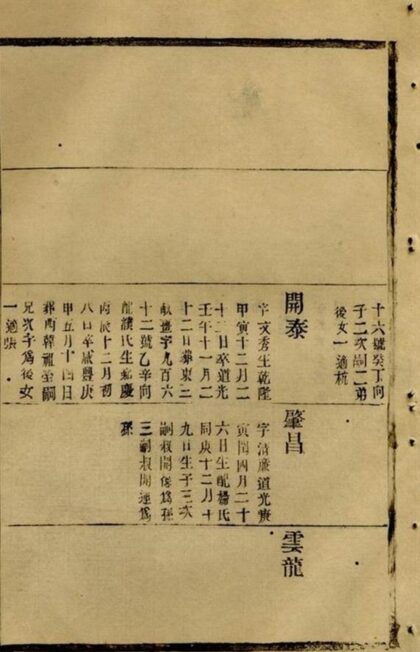 十六號癸丁向
子二次嗣二弟
後女一適杭
開泰
字秀生乾隆
甲寅十二月二
十日卒道光
壬午十一月二
十二日葬東三
字九百六
十二號乙辛向
配濮氏生嘉慶
丙辰十二月初
八日卒咸豐庚
申五月十四日
葬西韓祖塋嗣
兄次子為後女
一適
肇昌
字清道光庚
寅閏四月二十
六日生配楊氏
同庚十二月十
九日生子三次
嗣叔開為孫
三嗣叔開運為
孫
雲龍